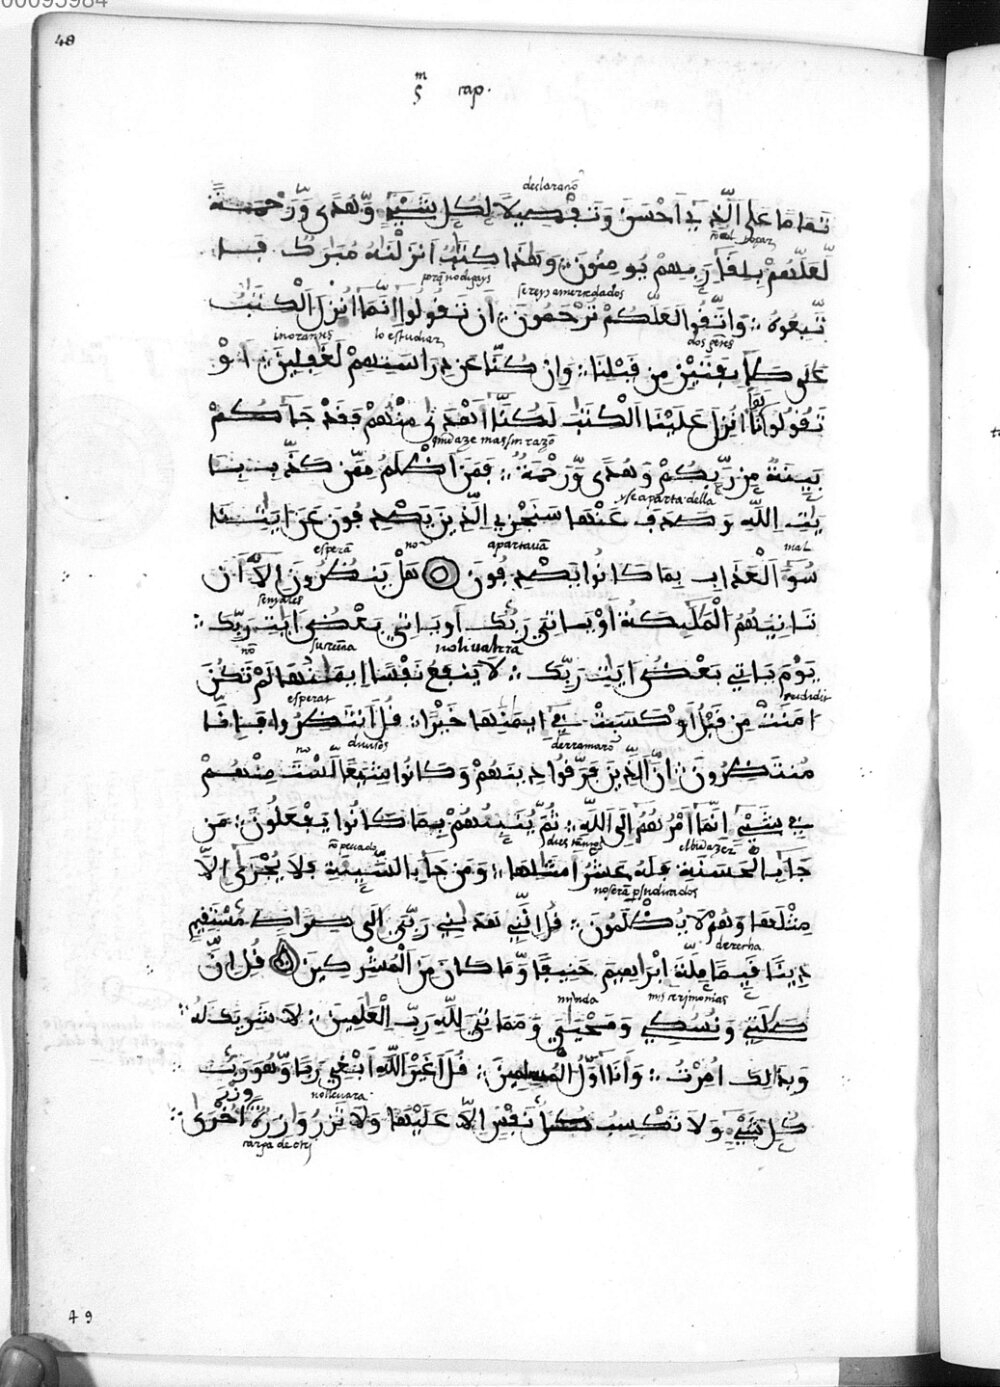 00095984
48
cap.
declaranō
تَمَامًا عَلَى الَّذِے أَحْسَنَ وَتَفْصِيلًا لِكُلِّ شَيْءٍ وَهُدًى وَرَحْمَةً
لَّعَلَّهُمْ بِلِقَاءِ رَبِّهِمْ يُومِنُونَ وَهَٰذَا كِتَٰبٌ أَنزَلْنَٰهُ مُبَٰرَكٌ فَا
porq̄ no digays sereys amerzdados
تَّبِعُوهُ وَاتَّقُوا لَعَلَّكُمْ تُرْحَمُونَ أَن تَقُولُوا إِنَّمَا أُنزِلَ الْكِتَٰبُ
inorantes lo estudiar dos gētes
عَلَى طَائِفَتَيْنِ مِن قَبْلِنَا وَإِن كُنَّا عَن دِرَاسَتِهِمْ لَغَٰفِلِينَ أَوْ
تَقُولُوا لَوْ أَنَّا أُنزِلَ عَلَيْنَا الْكِتَٰبُ لَكُنَّا أَهْدَىٰ مِنْهُمْ فَقَدْ جَاءَكُمْ
quiē haze mas sin razō
بَيِّنَةٌ مِّن رَّبِّكُمْ وَهُدًى وَرَحْمَةٌ فَمَنْ أَظْلَمُ مِمَّن كَذَّبَ بِـَٔا
y se aparta della
يَٰتِ اللَّهِ وَصَدَفَ عَنْهَا سَنَجْزِي الَّذِينَ يَصْدِفُونَ عَنْ ءَايَٰتِنَا
esperā no apartauā mal
سُوءَ الْعَذَابِ بِمَا كَانُوا يَصْدِفُونَ هَلْ يَنظُرُونَ إِلَّا أَن
señales
تَاتِيَهُمُ الْمَلَٰئِكَةُ أَوْ يَاتِيَ رَبُّكَ أَوْ يَاتِيَ بَعْضُ ءَايَٰتِ رَبِّكَ
nō su creēna no lualdra
يَوْمَ يَاتِي بَعْضُ ءَايَٰتِ رَبِّكَ لَا يَنفَعُ نَفْسًا إِيمَٰنُهَا لَمْ تَكُنْ
esperat
ءَامَنَتْ مِن قَبْلُ أَوْ كَسَبَتْ فِي إِيمَٰنِهَا خَيْرًا قُلِ انتَظِرُوا إِنَّا
no diuisos derramarō
مُنتَظِرُونَ إِنَّ الَّذِينَ فَرَّقُوا دِينَهُمْ وَكَانُوا شِيَعًا لَّسْتَ مِنْهُمْ
فِي شَيْءٍ إِنَّمَا أَمْرُهُمْ إِلَى اللَّهِ ثُمَّ يُنَبِّئُهُم بِمَا كَانُوا يَفْعَلُونَ مَن
ē pecado dies tātos el biē hazer
جَاءَ بِالْحَسَنَةِ فَلَهُ عَشْرُ أَمْثَالِهَا وَمَن جَاءَ بِالسَّيِّئَةِ فَلَا يُجْزَىٰ إِلَّا
no serā p̄judicados
مِثْلَهَا وَهُمْ لَا يُظْلَمُونَ قُلْ إِنَّنِي هَدَٰنِي رَبِّي إِلَىٰ صِرَاطٍ مُّسْتَقِيمٍ
derecha
دِينًا قَيِّمًا مِّلَّةَ إِبْرَاهِيمَ حَنِيفًا وَمَا كَانَ مِنَ الْمُشْرِكِينَ قُلْ إِنَّ
mi uida mis cerimonias
صَلَاتِي وَنُسُكِي وَمَحْيَايَ وَمَمَاتِيَ لِلَّهِ رَبِّ الْعَٰلَمِينَ لَا شَرِيكَ لَهُ
وَبِذَٰلِكَ أُمِرْتُ وَأَنَا أَوَّلُ الْمُسْلِمِينَ قُلْ أَغَيْرَ اللَّهِ أَبْغِي رَبًّا وَهُوَ رَبُّ
no lleuara وِزْرَ
كُلِّ شَيْءٍ وَلَا تَكْسِبُ كُلُّ نَفْسٍ إِلَّا عَلَيْهَا وَلَا تَزِرُ وَازِرَةٌ أُخْرَىٰ
carga de otr̄
49